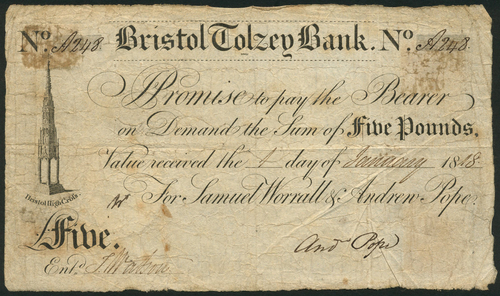 No. A248 Bristol Tolzey Bank. No. A248
I Promise to pay the Bearer
on Demand the Sum of Five Pounds.
Value received the 1 day of January 1818
Bristol High Cross
For Samuel Worrall & Andrew Pope.
£Five.
And Pope
Entd. J. Watson